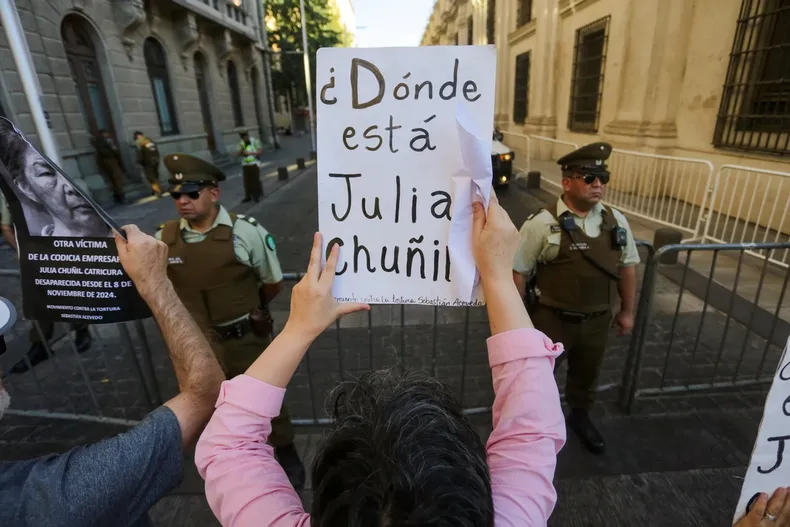 ¿Dónde
está
Julia
chuñil
Movimiento contra la tortura Sebastián Acevedo
OTRA VÍCTIMA
DE LA CODICIA EMPRESAR
JULIA CHUÑIL CATRICURA
DESAPARECIDA DESDE EL 8 DE
NOVIEMBRE DE 2024.
MOVIMIENTO CONTRA LA TORTURA
SEBASTIÁN ACEVEDO